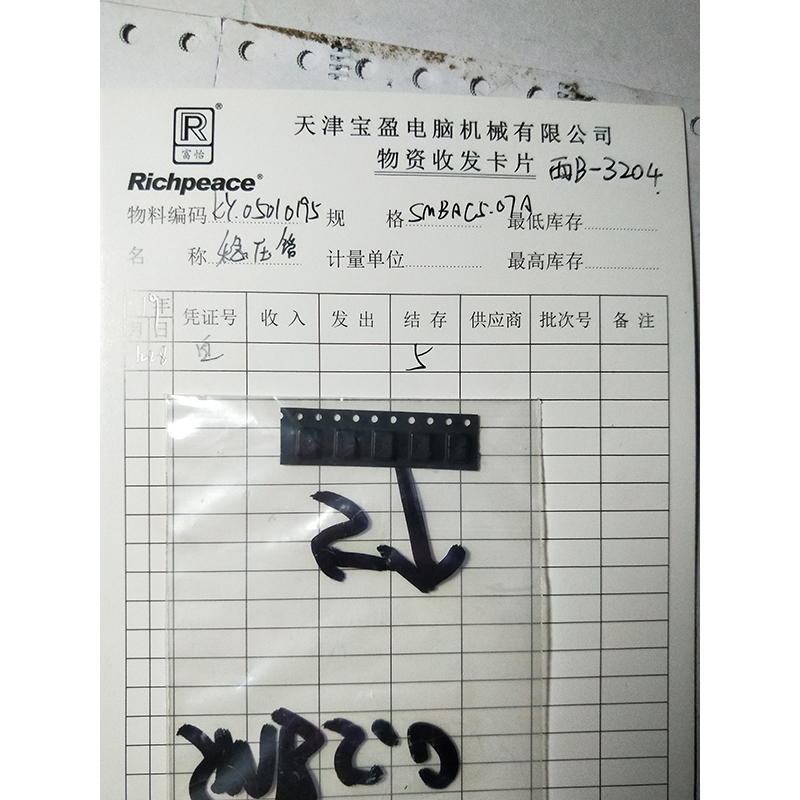 R®
富怡
Richpeace®
天津宝盈电脑机械有限公司
物资收发卡片 雨B-3204
物料编码 LY.05010195 规 格 SMBAC5.07A 最低库存
名 称 稳压管 计量单位 最高库存
19年 凭证号 收入 发出 结存 供应商 批次号 备注
月 日
12.8 5